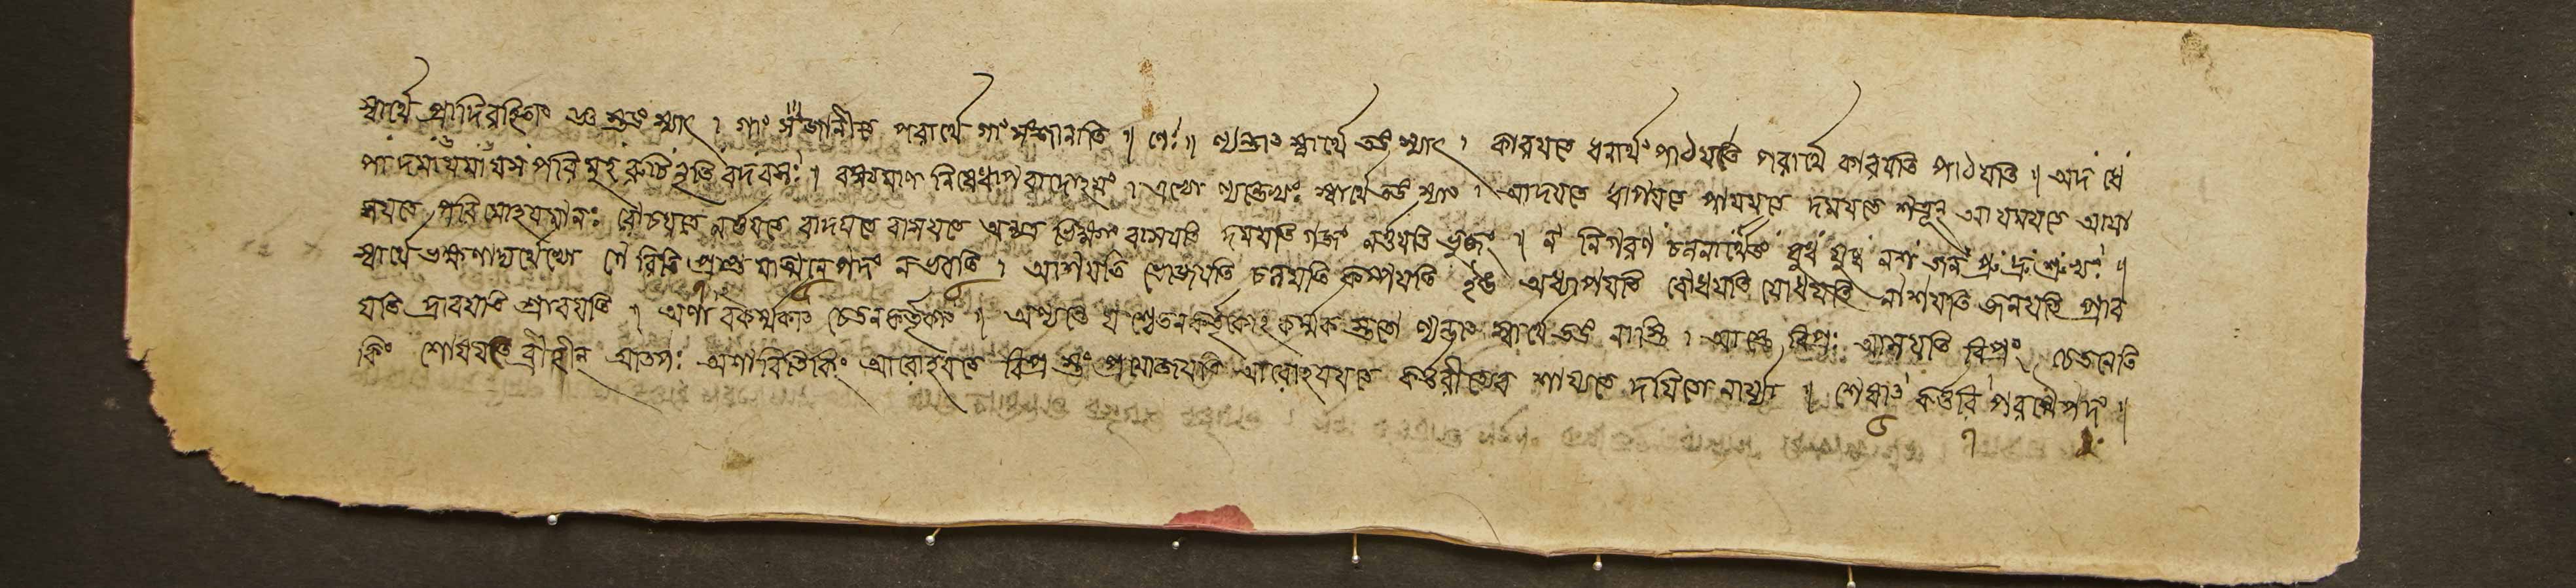 স্বার্থে প্রাদিরহিতাং জ্ঞ স্তঙং স্যাৎ । গাং সংজানীতে পরার্থে গাং সংজানাতি ॥ ণেঃ ॥ ণ্যন্তাৎ স্বার্থে তঙং স্যাৎ । কারয়তে ধনার্থং পাঠয়তে পরার্থে কারয়তি পাঠয়তি ॥ অদ ধে
পা দমা যমা যস পরি মুহ রুচি নৃতি বদ বসঃ ॥ বক্ষ্যমাণ নিষেধাপবাদোঽয়ং । এভ্যো ণ্যন্তেভ্যঃ স্বার্থে তঙং স্যাৎ । আদয়তে ধাপয়তে পায়য়তে দময়তে শত্রূন্ আযময়তে আয়া
সয়তে পরিমোহয়মানঃ রোচয়তে নর্তয়তে বাদয়তে বাসয়তে অন্যত্র ভিক্ষণং বাসয়তি দময়তি গজং নর্তয়তি ভুজং ॥ ন নিগরণ চলনার্থেঙ বুধ যুধ নশ জন প্রু দ্রু শ্রুভ্যঃ ॥
স্বার্থে ভক্ষণাদ্যর্থেভ্যো ণেরিতি প্রাপ্ত মাত্মনেপদং ন ভবতি । আশয়তি ভোজয়তি চলয়তি কম্পয়তি ইঙ অধ্যাপয়তি বোধয়তি যোধয়তি নাশয়তি জনয়তি প্রাব
য়তি দ্রাবয়তি শ্রাবয়তি ॥ অণাবকর্ম্মকাৎ চেতনকর্তৃকাৎ ॥ অণ্যন্তে য শ্চেতনকর্তৃকোঽকর্ম্মক স্ততো ণ্যন্তাৎ স্বার্থে তঙং নাস্তি । আস্তে বিপ্রঃ আসয়তি বিপ্রং চেতনেতি
কিং শোষয়তে ব্রীহীন্ আতপঃ অণাবিতি কিং আরোহয়তে বিপ্র স্তং প্রযোজয়তি আরোহয়য়তে কর্তরীত্যেব শায্যতে দয়িতো নার্য্যা ॥ শেষাৎ কর্তরি পরস্মৈপদং ॥